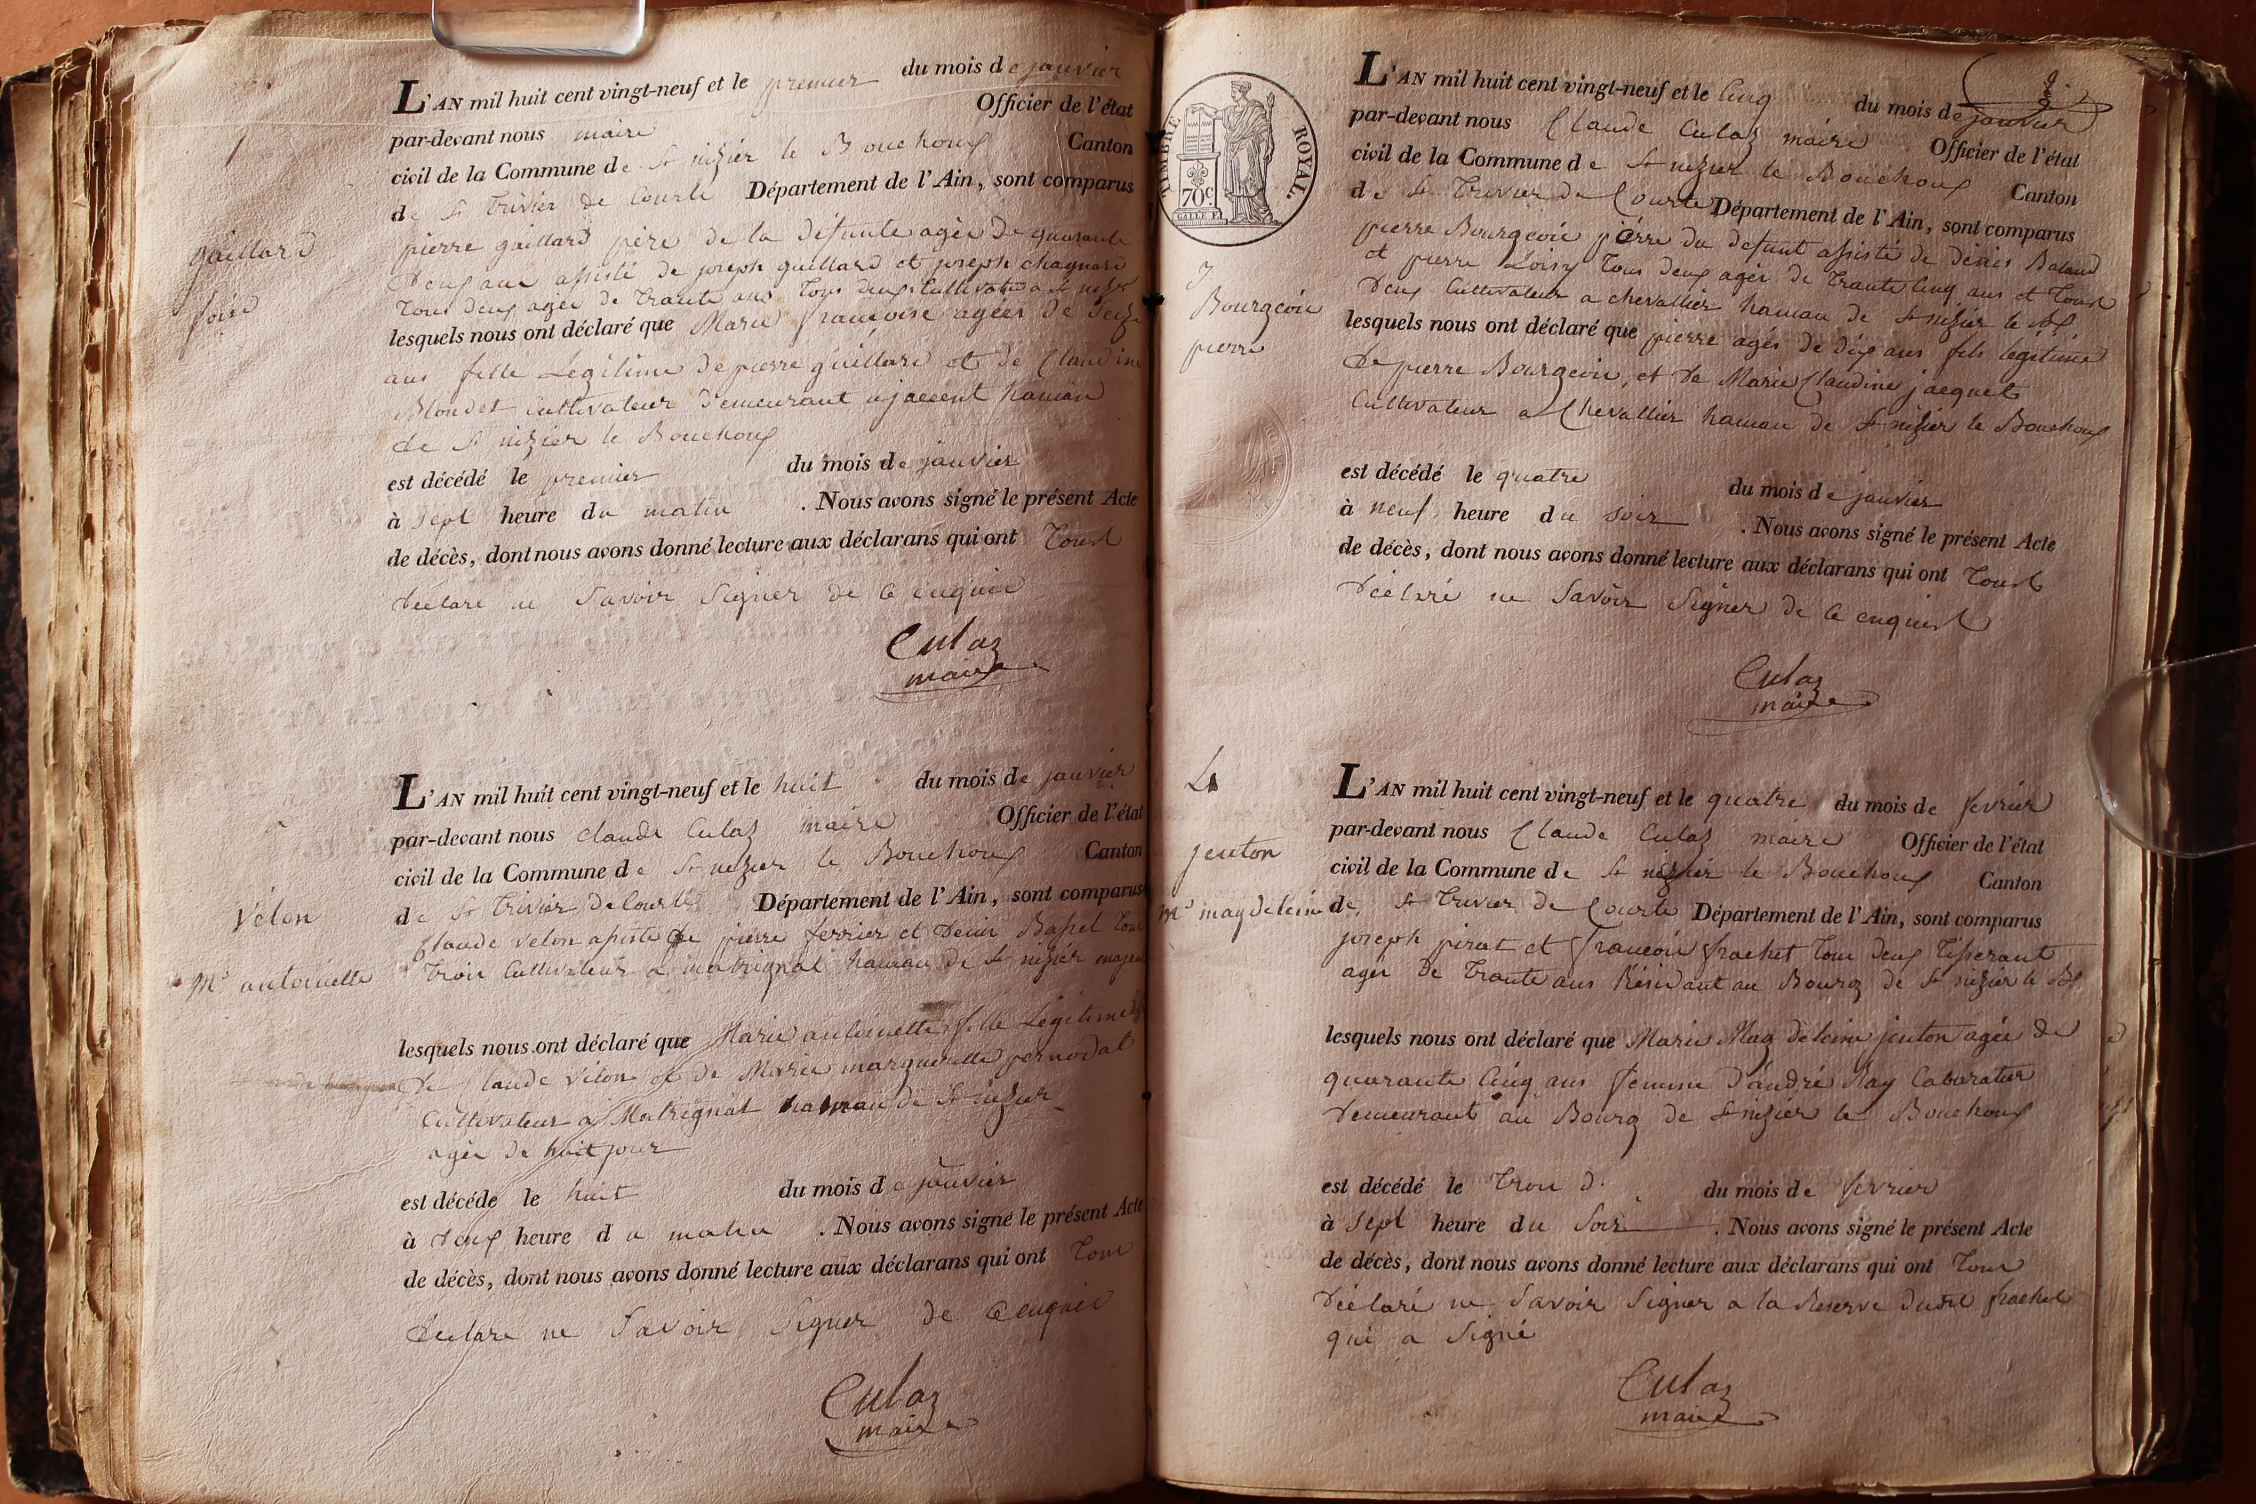 L'AN mil huit cent vingt-neuf et le premier du mois de janvier
par-devant nous maire Officier de l'état
civil de la Commune de St nizier le Bouchoux Canton
de St Trivier de Courte Département de l'Ain, sont comparus
pierre gaillard père de la défunte agée de quarante
deux ans assisté de joseph guillard et joseph chagnard
Tous deux agée de Trante ans Tous deux Cultivateur a St nizier
lesquels nous ont déclaré que Marie françoise agéer de Seize
ans fille Légitime de pierre guillard et de Claudine
Blondet cultivateur demeurant a jassent hamau
de St nizier le Bouchoux
est décédé le premier du mois de janvier
à sept heure du matin . Nous avons signé le présent Acte
de décès, dont nous avons donné lecture aux déclarans qui ont Tous
déclaré ne Savoir Signer de ce enquis
Culaz
maire
1
gaillard
L'AN mil huit cent vingt-neuf et le huit du mois de janvier
par-devant nous claude Culaz maire Officier de l'état
civil de la Commune de St nizier le Bouchoux Canton
de St Trivier de Courte Département de l'Ain, sont comparus
Claude velon assisté de pierre ferrier et denis Basset Tous
Trois Cultivateur a matrignat hamau de St nizier
lesquels nous ont déclaré que Marie antoinette fille Légitime
de Claude vélon et de Marie margueritte pernodat
Cultivateur a Matrignat hamau de St nizier
agée de huit jour
est décédé le huit du mois de janvier
à deux heure du matin . Nous avons signé le présent Acte
de décès, dont nous avons donné lecture aux déclarans qui ont Tous
déclaré ne Savoir Signer de ce enquis
Culaz
maire
Vélon
Me antoinette
TIMBRE ROYAL.
70c
L'AN mil huit cent vingt-neuf et le Cinq du mois de janvier
par-devant nous Claude Culaz maire Officier de l'état
civil de la Commune de St nizier le Bouchoux Canton
de St Trivier de Courte Département de l'Ain, sont comparus
pierre Bourgeois père du defunt assisté de denis Baland
et pierre Loisy Tous deux agés de Trante Cinq ans et Tous
deux Cultivateur a chevallier hamau de St nizier le Bx
lesquels nous ont déclaré que pierre agés de dix ans fils légitime
de pierre Bourgeois, et de Marie Claudine jacquet
Cultivateur a Chevallier hamau de St nizier le Bouchoux
est décédé le quatre du mois de janvier
à neuf heure du soir . Nous avons signé le présent Acte
de décès, dont nous avons donné lecture aux déclarans qui ont Tous
déclaré ne Savoir Signer de ce enquis
Culaz
maire
3
Bourgeois
pierre
L'AN mil huit cent vingt-neuf et le quatre du mois de fevrier
par-devant nous Claude Culaz maire Officier de l'état
civil de la Commune de St nizier le Bouchoux Canton
de St Trivier de Courte Département de l'Ain, sont comparus
joseph pirat et françois frachet Tous deux Tisserant
agés de Trante ans Résidant au Bourg de St nizier le Bx
lesquels nous ont déclaré que Marie Magdeleine jenton agée de
quarante Cinq ans femme d'andré Ray Cabaratier
demeurant au Bourg de St nizier le Bouchoux
est décédé le Trois du mois de fevrier
à sept heure du Soir . Nous avons signé le présent Acte
de décès, dont nous avons donné lecture aux déclarans qui ont Tous
déclaré ne Savoir Signer a la Reserve dudit frachet
qui a Signé
Culaz
maire
4
jenton
Me magdeleine